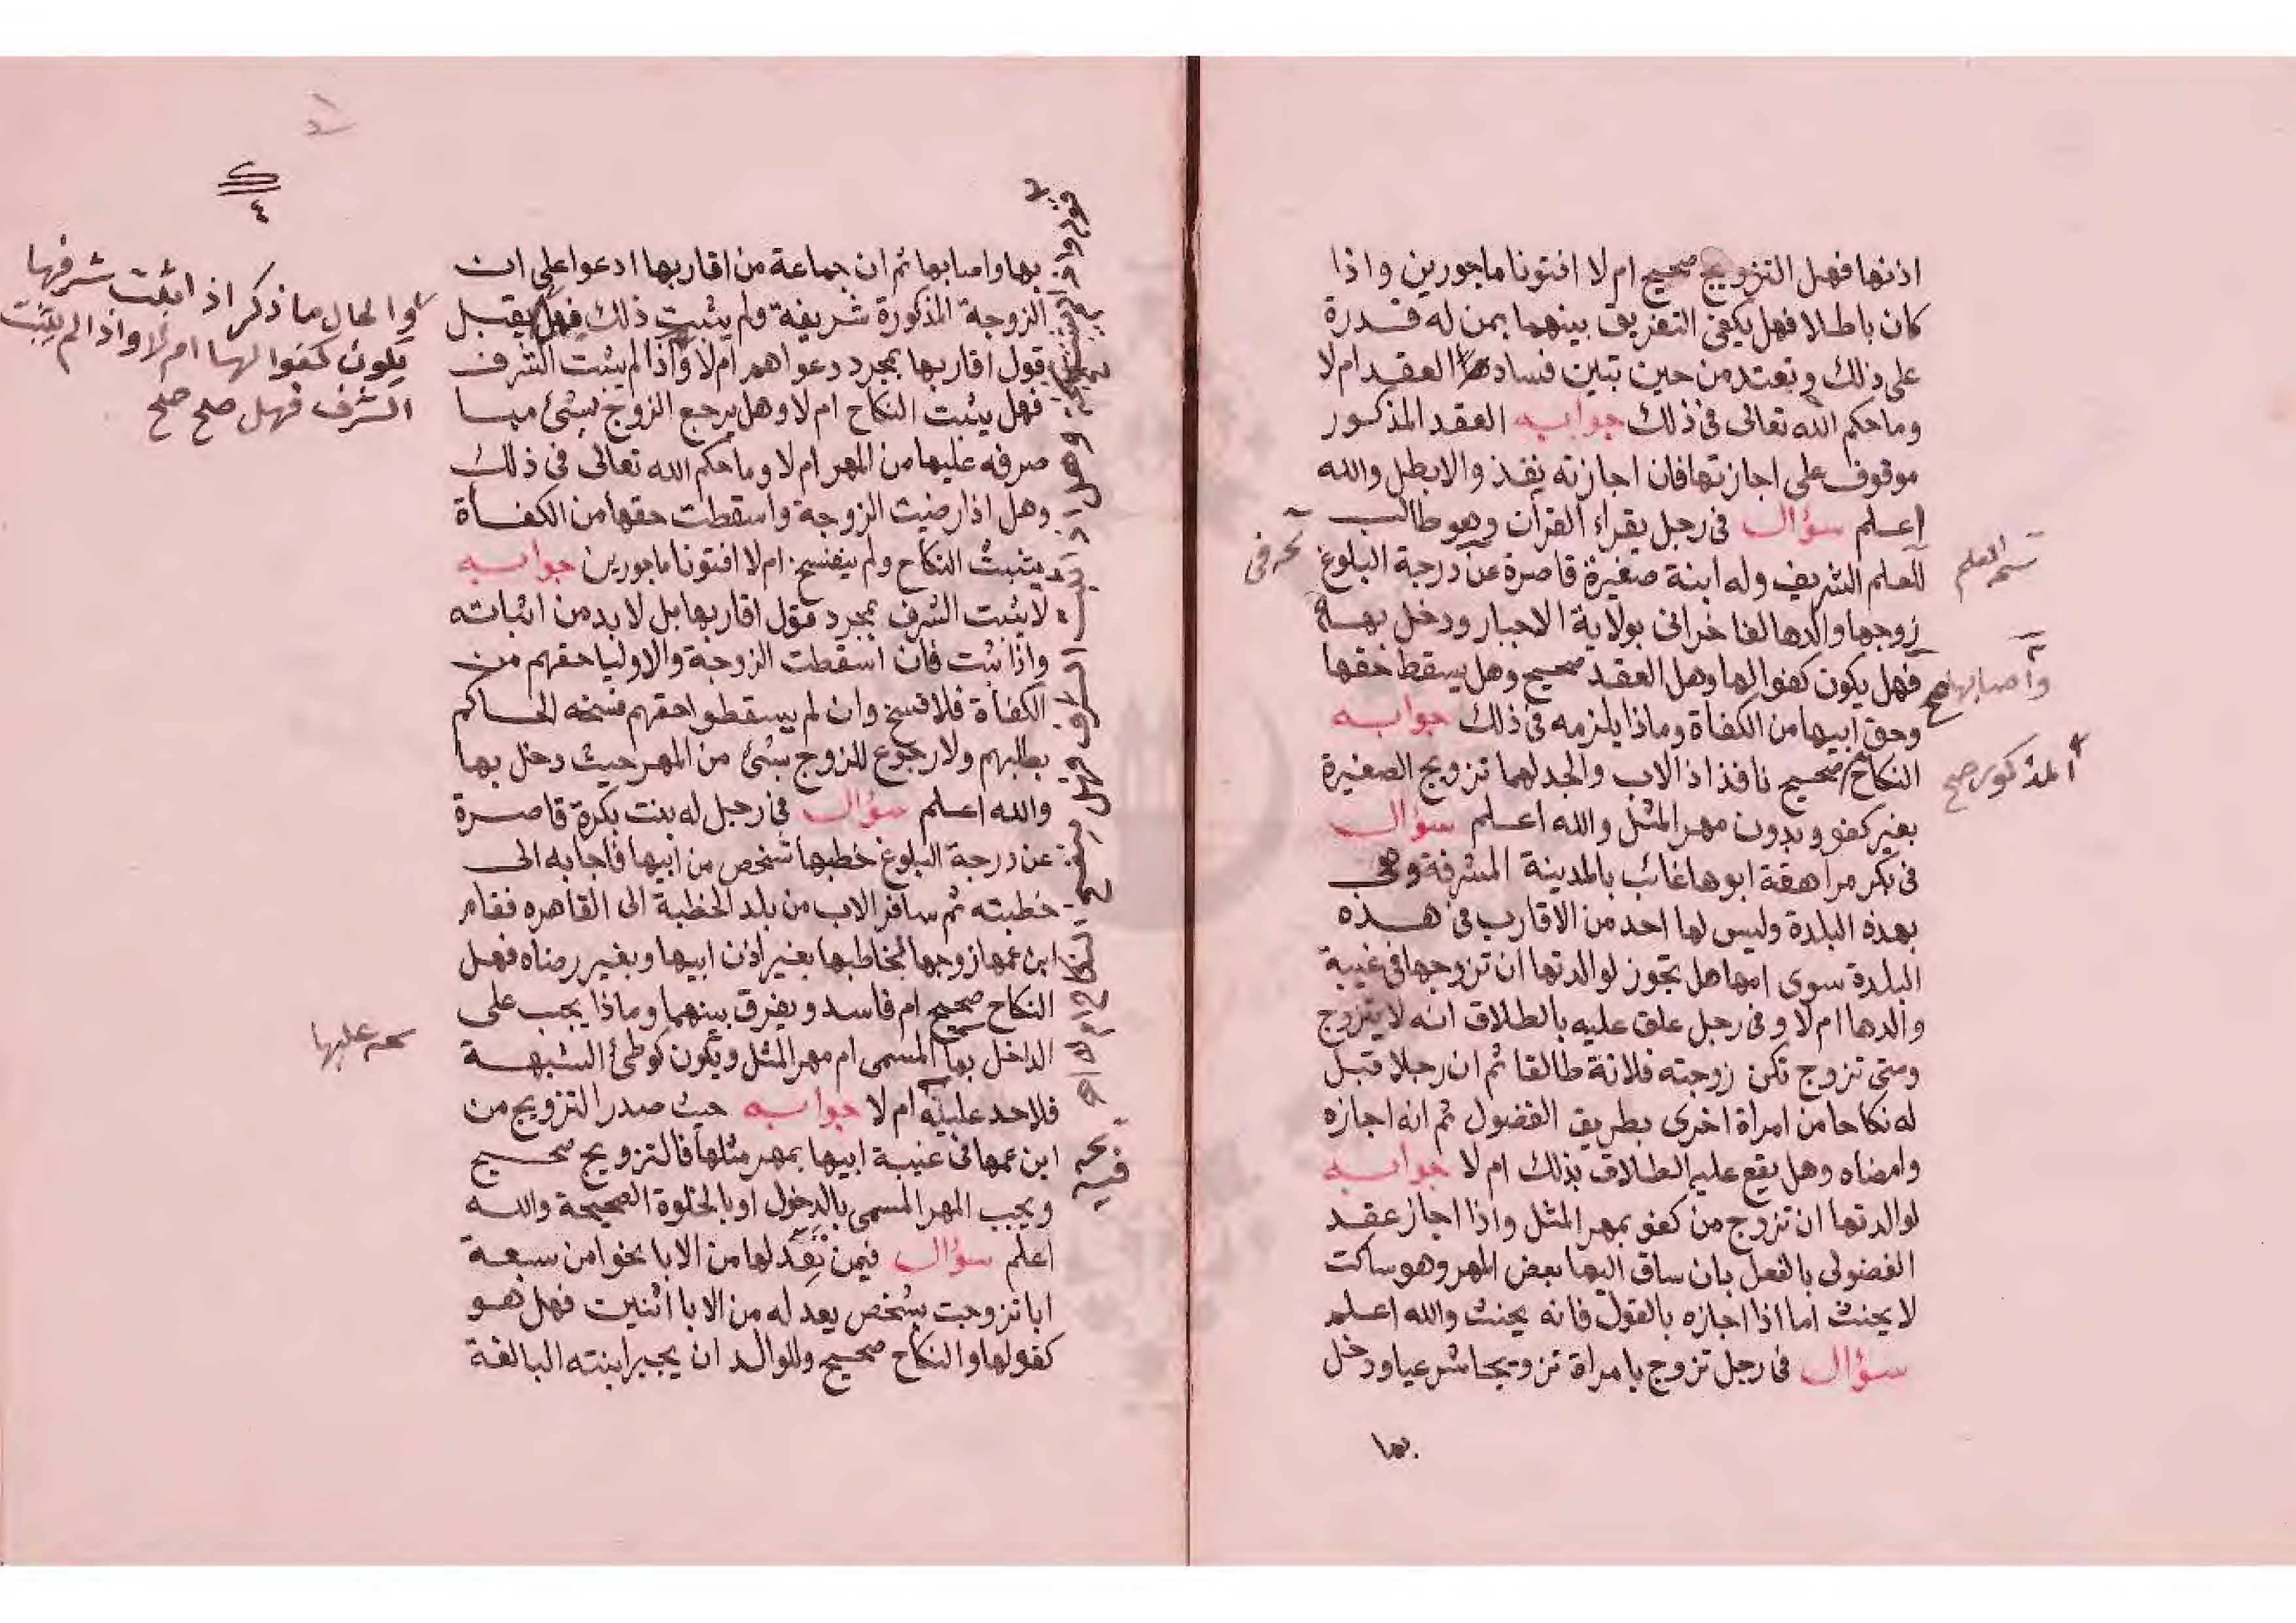 اذنها فهل التزويج صحيح ام لا افتونا ماجورين واذا
كان باطلا فهل يكفى التفريق بينهما بمن له قدرة
على ذلك وتعتد من حين تبين فساد العقد ام لا
وما حكم الله تعالى فى ذلك جوابه العقد المذكور
موقوف على اجازتها فان اجازته نفذ والا بطل والله
اعلم سؤال فى رجل يقراء القران وهو طالب
للعلم الشريف وله ابنة صغيرة قاصرة عن درجة البلوغ
زوجها والدها لفاخرانى بولاية الاجبار ودخل بها
فهل يكون كفوا لها وهل العقد صحيح وهل يسقط حقها
وحق ابيها من الكفأة وماذا يلزمه فى ذلك جوابه
النكاح صحيح نافذ اذ الاب والجد لهما تزويج الصغيرة
بغير كفو وبدون مهر المثل والله اعلم سؤال
فى بكر مراهقة ابوها غائب بالمدينة المشرفة وهى
بهذه البلدة وليس لها احد من الاقارب فى هذه
البلدة سوى امها هل يجوز لوالدتها ان تزوجها فى غيبة
والدها ام لا وفى رجل علق عليه بالطلاق انه لا يتزوج
ومتى تزوج تكن زوجته فلانة طالقا ثم ان رجلا قبل
له نكاحا من امراة اخرى بطريق الفضول ثم انه اجازه
وامضاه وهل يقع عليه الطلاق بذلك ام لا جوابه
لوالدتها ان تزوج من كفو بمهر المثل واذا اجاز عقد
الفضولى بالفعل بان ساق اليها بعض المهر وهو ساكت
لا يحنث اما اذا اجازه بالقول فانه يحنث والله اعلم
سؤال فى رجل تزوج بامراة تزويجا شرعيا ودخل
بها
العلم
واصابها صح
المذكور صح
فى
بها واصابها ثم ان جماعة من اقاربها ادعوا على ان
الزوجة المذكورة شريفة ولم يثبت ذلك فهل يقبل
قول اقاربها بمجرد دعواهم ام لا واذا لم يثبت الشرف
فهل يثبت النكاح ام لا وهل يرجع الزوج بشئ مما
صرفه عليها من المهر ام لا وما حكم الله تعالى فى ذلك
وهل اذا رضيت الزوجة واسقطت حقها من الكفأة
يثبت النكاح ولم يفسخ ام لا افتونا ماجورين جوابه
لا يثبت الشرف بمجرد قول اقاربها بل لا بد من اثباته
واذا ثبت فان اسقطت الزوجة والاوليا حقهم من
الكفأة فلا فسخ وان لم يسقطوا حقهم فسخه الحاكم
بطلبهم ولا رجوع للزوج بشئ من المهر حيث دخل بها
والله اعلم سؤال فى رجل له بنت بكرة قاصرة
عن درجة البلوغ خطبها شخص من ابيها فاجابه الى
خطبته ثم سافر الاب من بلد الخطبة الى القاهره فقام
ابن عمها زوجها لخاطبها بغير اذن ابيها وبغير رضاه فهل
النكاح صحيح ام فاسد ويفرق بينهما وماذا يجب على
الداخل بها المسمى ام مهر المثل ويكون كوطئ الشبهة
فلا حد عليه ام لا جوابه حيث صدر التزويج من
ابن عمها فى غيبة ابيها بمهر مثلها فالتزويج صحيح
ويجب المهر المسمى بالدخول او بالخلوة الصحيحة والله
اعلم سؤال فيمن تعد لها من الابا نحوا من سبعة
ابا تزوجت بشخص يعد له من الابا اثنين فهل هو
كفو لها والنكاح صحيح وللوالد ان يجبر ابنته البالغة
٤
والحال ما ذكر اذا ثبت شرفها
يكون كفوا لها ام لا واذا لم يثبت
الشرف فهل صح صح
عليها
فيه